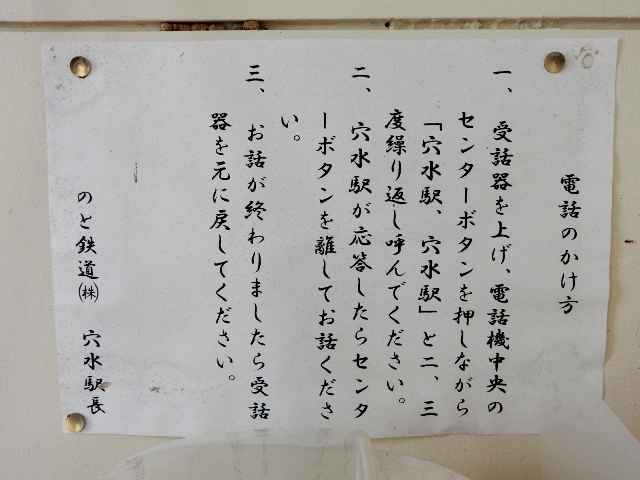 電話のかけ方
一、受話器を上げ、電話機中央の
センターボタンを押しながら
「穴水駅、穴水駅」と二、三
度繰り返し呼んでください。
二、穴水駅が応答したらセンタ
ーボタンを離してお話くださ
い。
三、お話が終わりましたら受話
器を元に戻してください。
のと鉄道㈱　穴水駅長